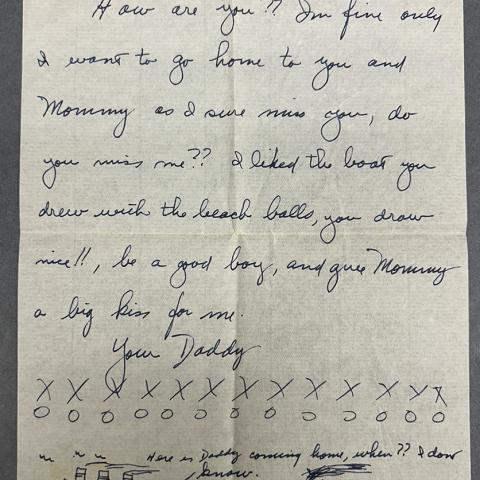 How are you!? I'm fine only
I want to go home to you and
Mommy as I sure miss you, do
you miss me?? I liked the boat you
drew with the beach balls, you draw
nice!!, be a good boy, and give Mommy
a big kiss for me.
Your Daddy
X X X X X X X X X X X X X
O O O O O O O O O O O O O
Here is Daddy coming home, when?? I don't
know.